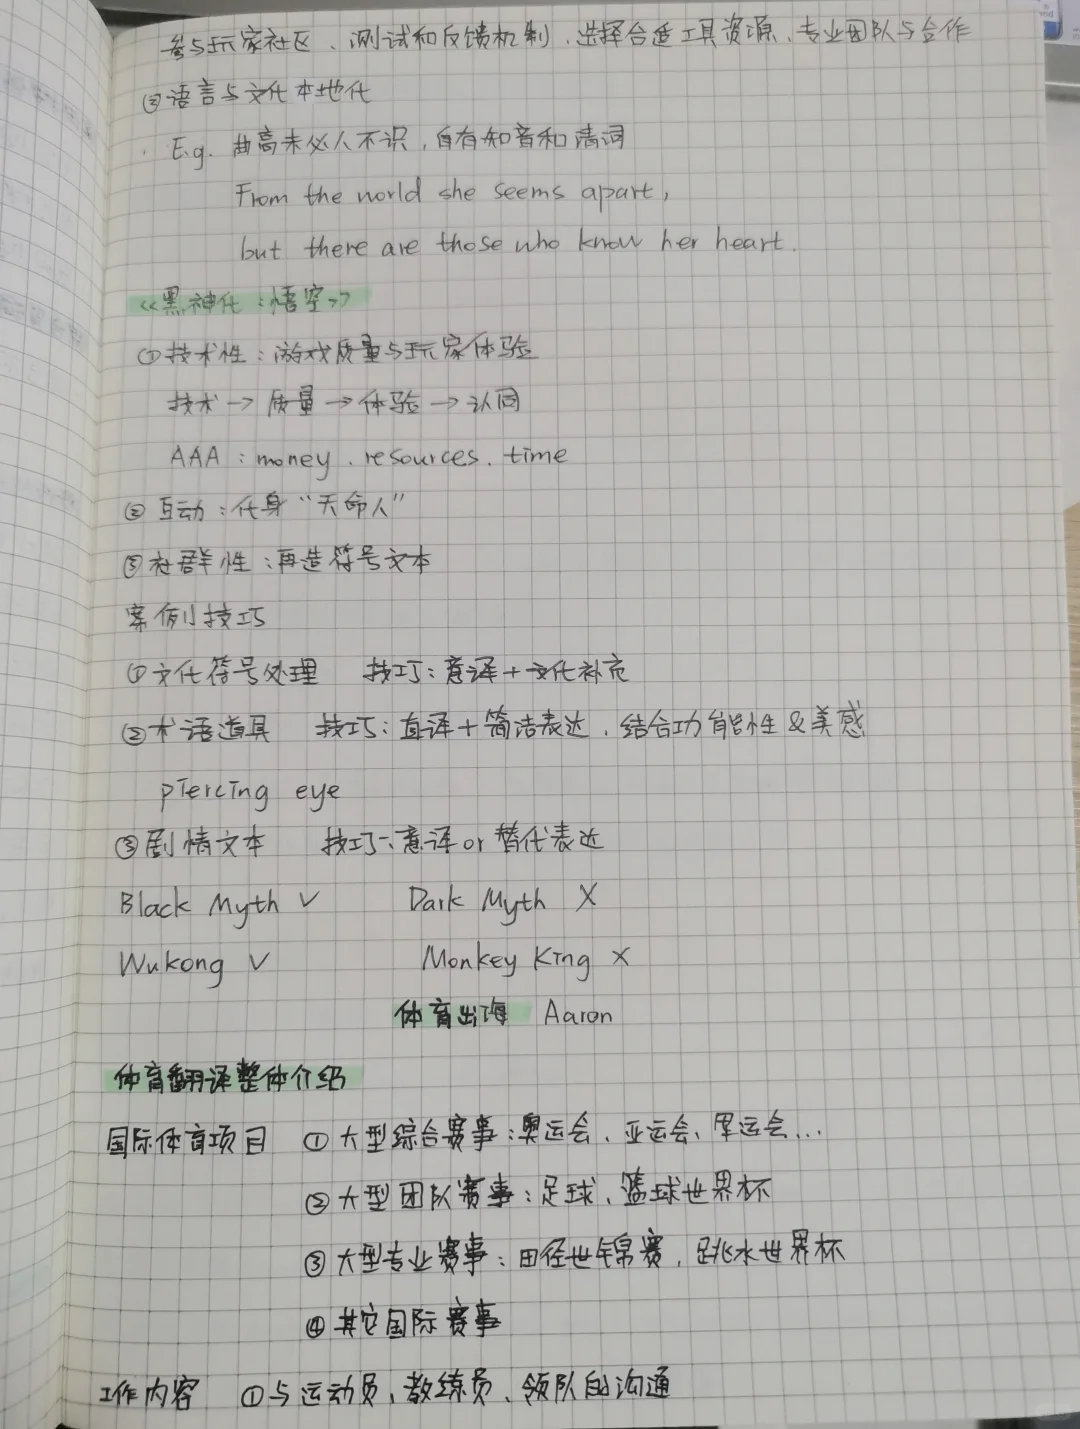 参与玩家社区、测试和反馈机制、选择合适工具资源、专业团队与合作
③语言与文化本地化
E.g. 曲高未必人不识，自有知音和清词
From the world she seems apart,
but there are those who know her heart.
<<黑神化：悟空>>
①技术性：游戏质量与玩家体验
技术→质量→体验→认同
AAA：money、resources、time
②互动：化身“天命人”
③社群性：再造符号文本
案例技巧
①文化符号处理 技巧：意译+文化补充
②术语道具 技巧：直译+简洁表达，结合功能性&美感
piercing eye
③剧情文本 技巧：意译or替代表达
Black Myth √ Dark Myth X
Wukong √ Monkey King X
体育出海 Aaron
体育翻译整体介绍
国际体育项目 ①大型综合赛事：奥运会、亚运会、军运会...
②大型团队赛事：足球、篮球世界杯
③大型专业赛事：田径世锦赛，跳水世界杯
④其它国际赛事
工作内容 ①与运动员、教练员、领队的沟通